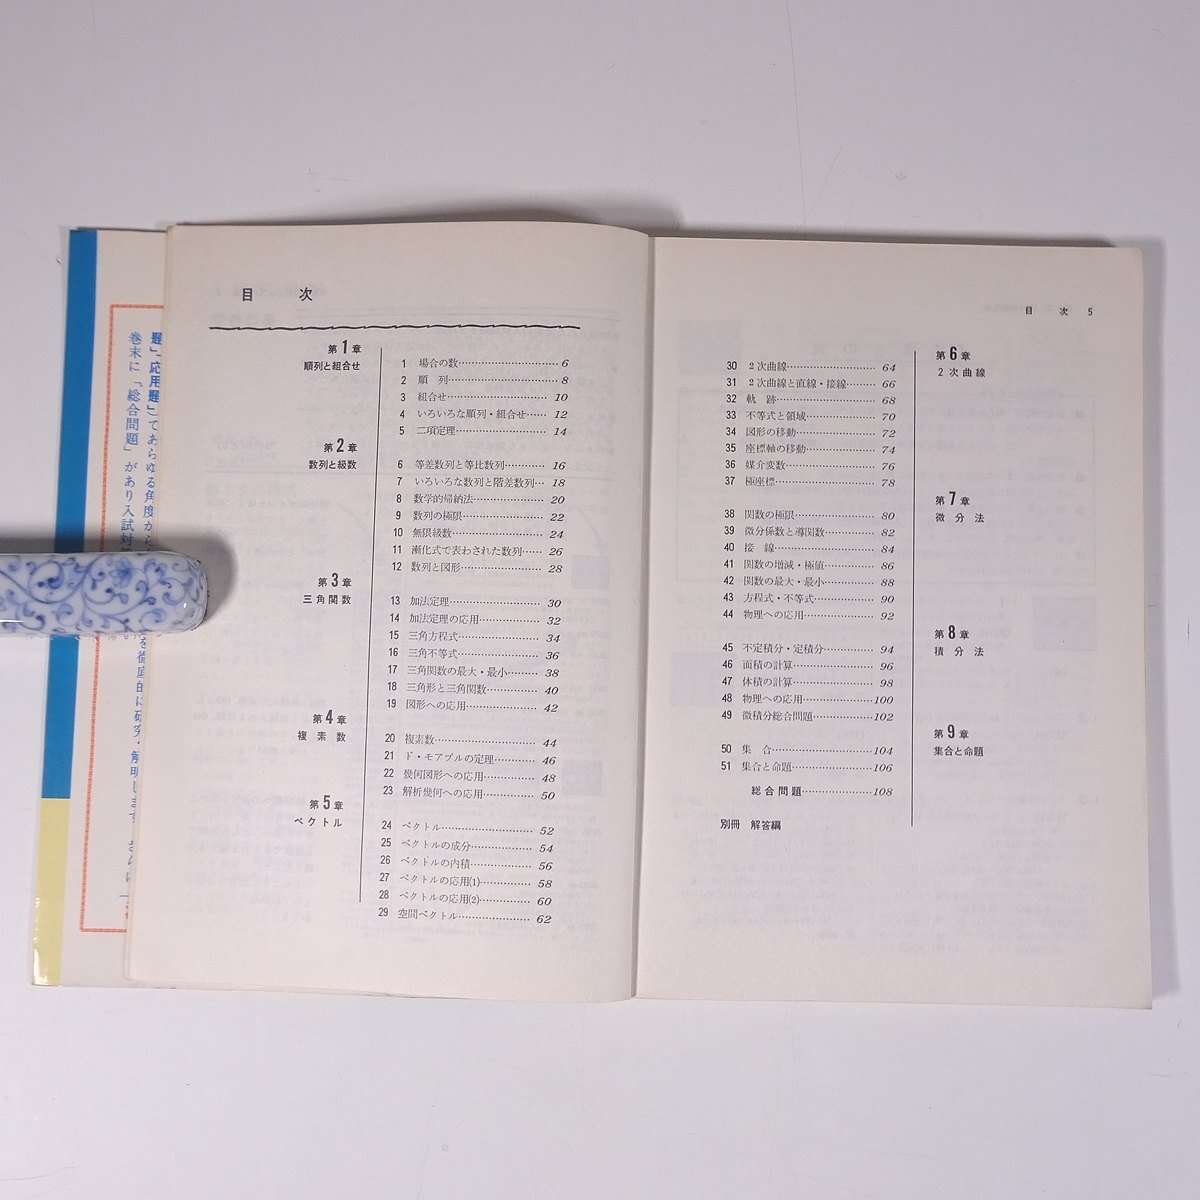 目 次
第1章
順列と組合せ
1 場合の数……………………………6
2 順 列………………………………8
3 組合せ………………………………10
4 いろいろな順列・組合せ……12
5 二項定理……………………………14
第2章
数列と級数
6 等差数列と等比数列…………16
7 いろいろな数列と階差数列…18
8 数学的帰納法……………………20
9 数列の極限………………………22
10 無限級数…………………………24
11 漸化式で表わされた数列……26
12 数列と図形………………………28
第3章
三角関数
13 加法定理…………………………30
14 加法定理の応用…………………32
15 三角方程式………………………34
16 三角不等式………………………36
17 三角関数の最大・最小………38
18 三角形と三角関数………………40
19 図形への応用……………………42
第4章
複素数
20 複素数……………………………44
21 ド・モアブルの定理……………46
22 幾何図形への応用………………48
23 解析幾何への応用………………50
第5章
ベクトル
24 ベクトル…………………………52
25 ベクトルの成分…………………54
26 ベクトルの内積…………………56
27 ベクトルの応用(1)………………58
28 ベクトルの応用(2)………………60
29 空間ベクトル……………………62
目 次 5
第6章
2次曲線
30 2次曲線…………………………64
31 2次曲線と直線・接線………66
32 軌 跡……………………………68
33 不等式と領域……………………70
34 図形の移動………………………72
35 座標軸の移動……………………74
36 媒介変数…………………………76
37 極座標……………………………78
第7章
微分法
38 関数の極限………………………80
39 微分係数と導関数………………82
40 接 線……………………………84
41 関数の増減・極値………………86
42 関数の最大・最小………………88
43 方程式・不等式…………………90
44 物理への応用……………………92
第8章
積分法
45 不定積分・定積分………………94
46 面積の計算………………………96
47 体積の計算………………………98
48 物理への応用……………………100
49 微積分総合問題…………………102
第9章
集合と命題
50 集 合……………………………104
51 集合と命題………………………106
総合問題…………………………108
別冊 解答編
題」「応用題」であらゆる角度から
巻末に「総合問題」があり入試対
を徹底的に研究・解明します。さらに